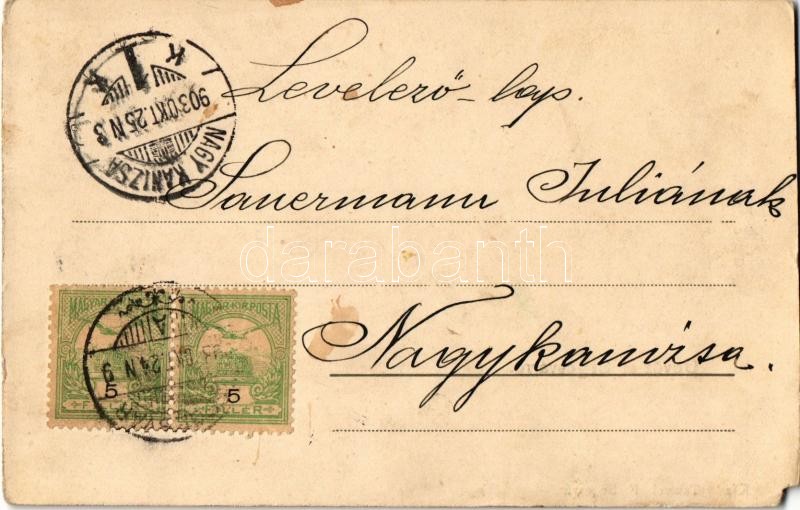 NAGY KANIZSA
903 OKT. 25 N 8
Levelező-lap.
Sauermann Juliának
darabanth
Nagykanizsa.
MAGYAR KIR. POSTA
24 N 9
5
5
FILLÉR